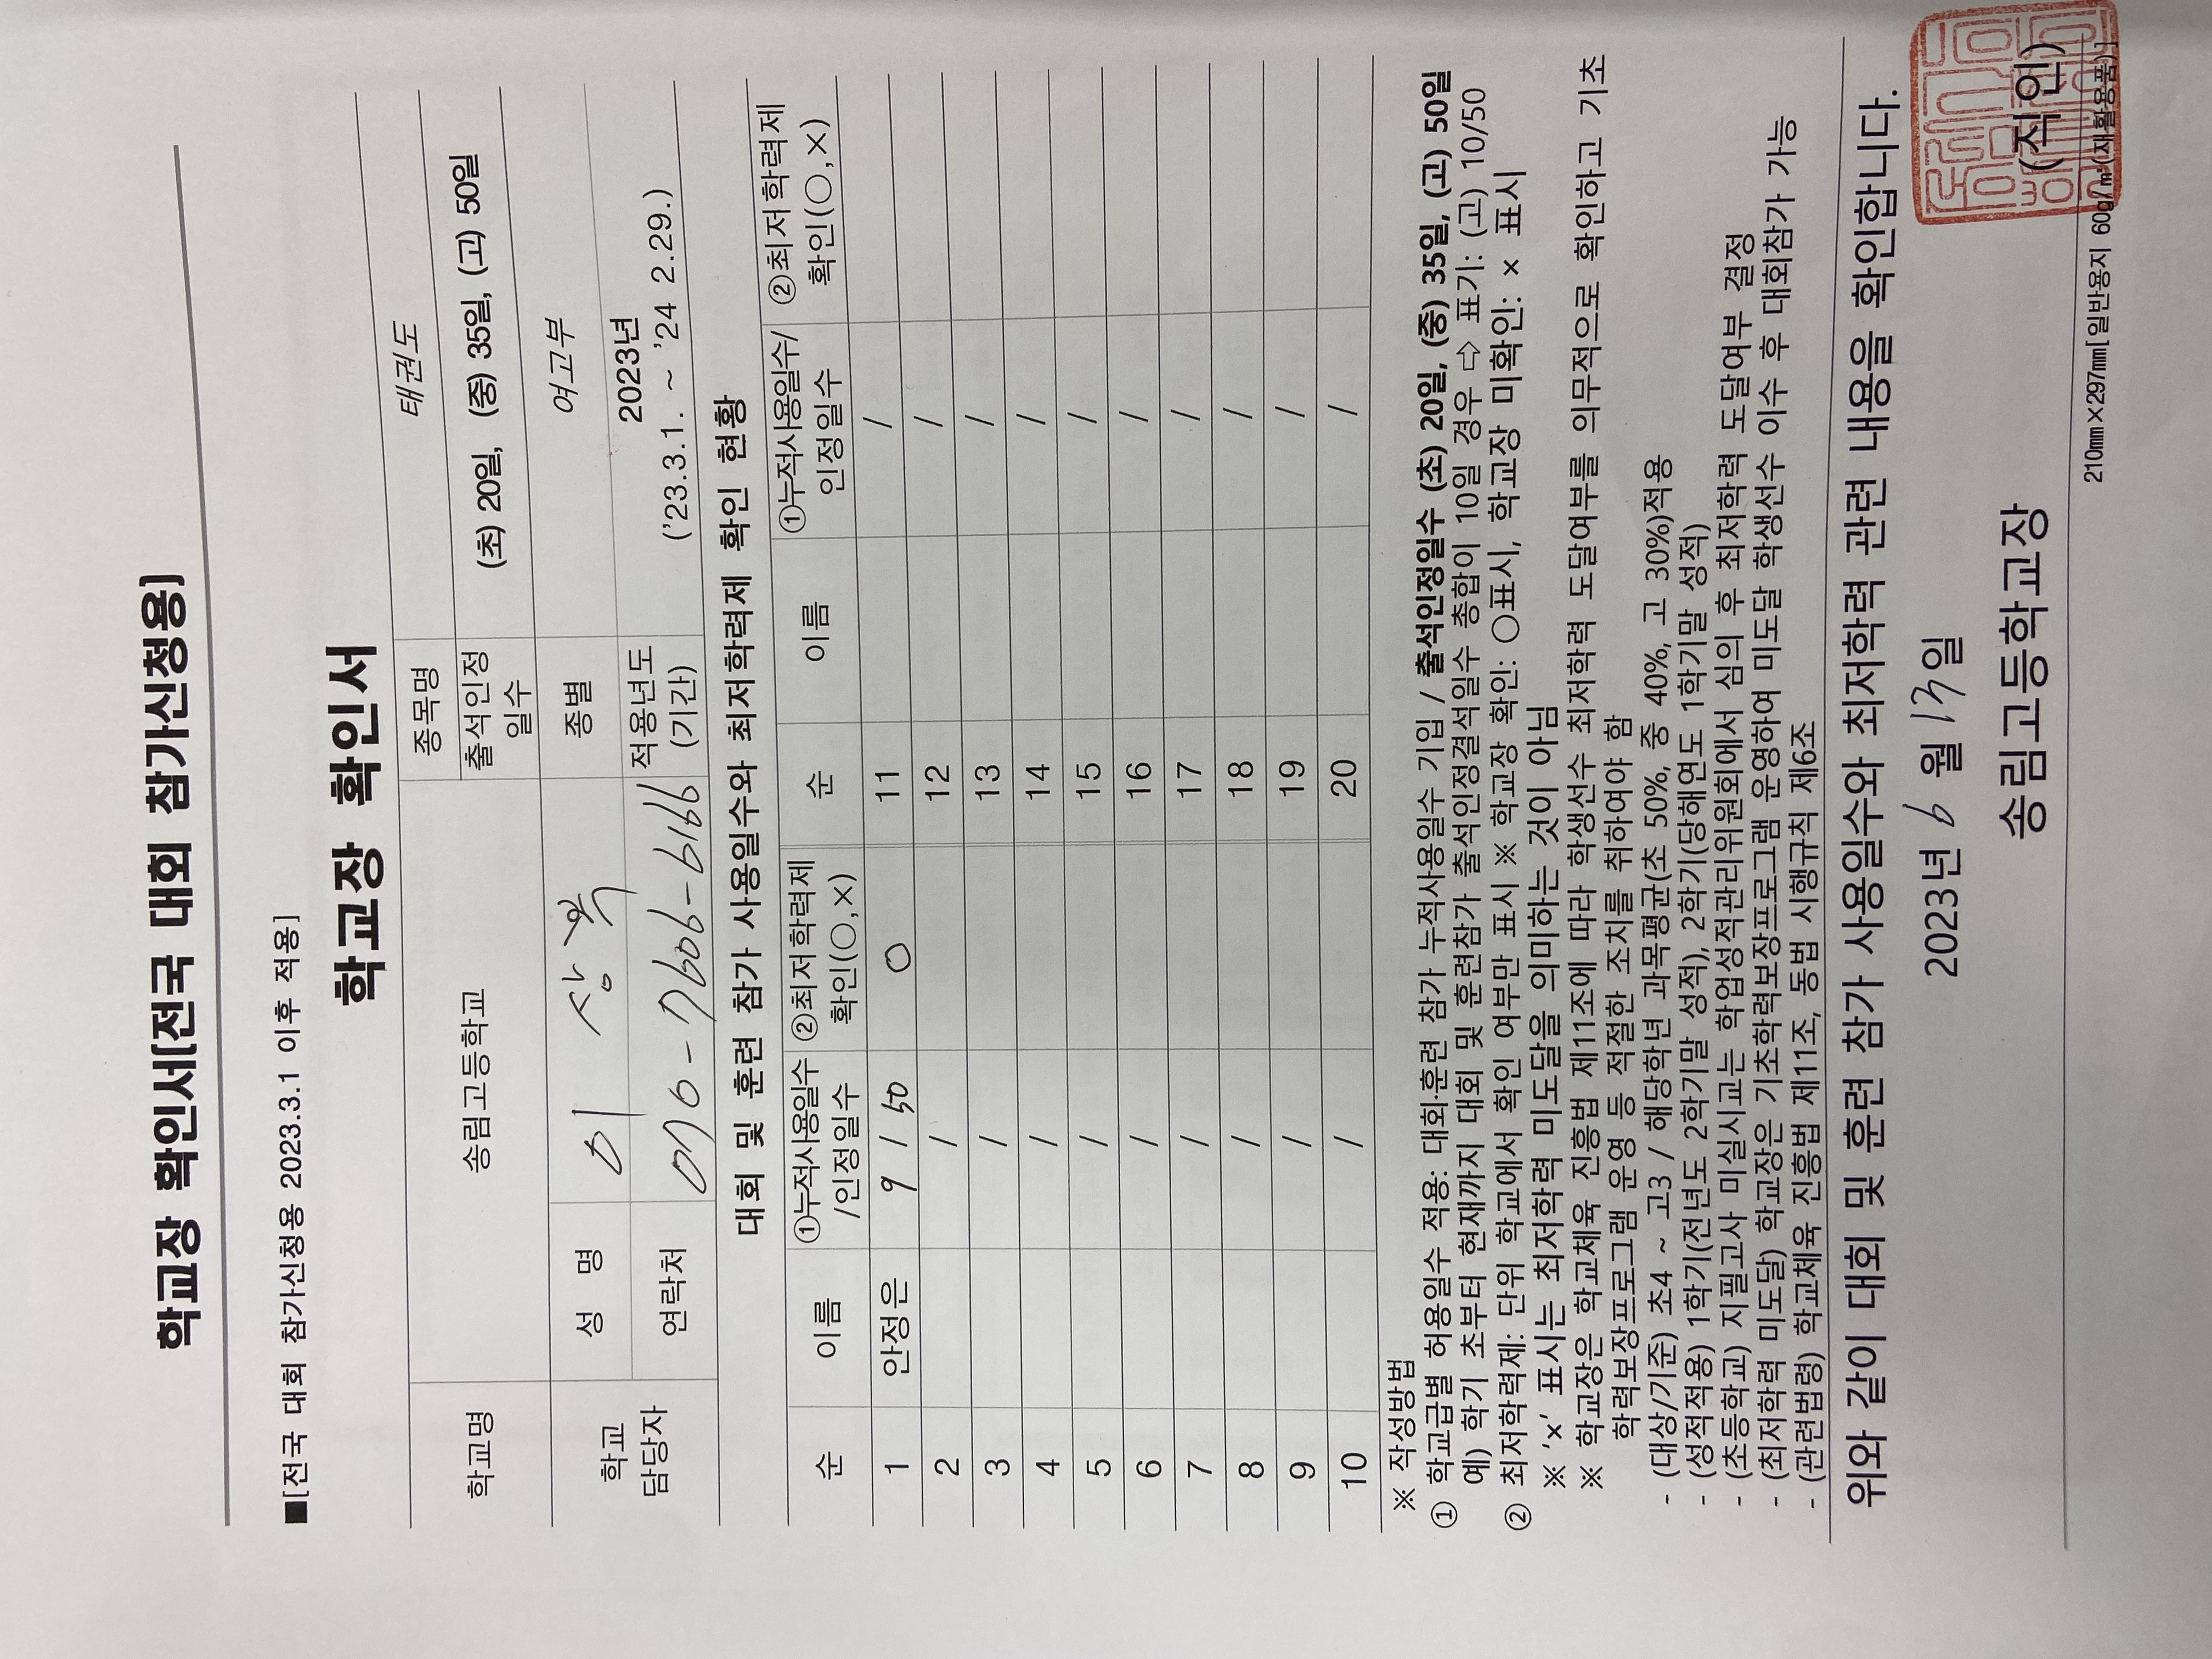 학교장 확인서[전국 대회 참가신청용]
■[전국 대회 참가신청용 2023.3.1 이후 적용]
학교장 확인서
학교명 송림고등학교 종목명 태권도
출석인정일수 (초) 20일, (중) 35일, (고) 50일
학교 담당자 성 명 이상욱 종별 여고부
연락처 010-7606-6166 적용년도(기간) 2023년 ('23.3.1. ~ '24 2.29.)
대회 및 훈련 참가 사용일수와 최저학력제 확인 현황
순 이름 ①누적사용일수/인정일수 ②최저학력제 확인(○,×) 순 이름 ①누적사용일수/인정일수 ②최저학력제 확인(○,×)
1 안정은 9 / 50 ○ 11 /
2 / 12 /
3 / 13 /
4 / 14 /
5 / 15 /
6 / 16 /
7 / 17 /
8 / 18 /
9 / 19 /
10 / 20 /
※ 작성방법
① 학교급별 허용일수 적용: 대회·훈련 참가 누적사용일수 기입 / 출석인정일수 (초) 20일, (중) 35일, (고) 50일
예) 학기 초부터 현재까지 대회 및 훈련참가 출석인정결석일수 총합이 10일 경우 ⇨ 표기: (고) 10/50
② 최저학력제: 단위 학교에서 확인 여부만 표시 ※ 학교장 확인: ○표시, 학교장 미확인: × 표시
※ 'x' 표시는 최저학력 미도달을 의미하는 것이 아님
※ 학교장은 학교체육 진흥법 제11조에 따라 학생선수 최저학력 도달여부를 의무적으로 확인하고 기초
학력보장프로그램 운영 등 적절한 조치를 취하여야 함
- (대상/기준) 초4 ~ 고3 / 해당학년 과목평균(초 50%, 중 40%, 고 30%)적용
- (성적적용) 1학기(전년도 2학기말 성적), 2학기(당해연도 1학기말 성적)
- (초등학교) 지필고사 미실시교는 학업성적관리위원회에서 심의 후 최저학력 도달여부 결정
- (최저학력 미도달) 학교장은 기초학력보장프로그램 운영하여 미도달 학생선수 이수 후 대회참가 가능
- (관련법령) 학교체육 진흥법 제11조, 동법 시행규칙 제6조
위와 같이 대회 및 훈련 참가 사용일수와 최저학력 관련 내용을 확인합니다.
2023년 6 월 13일
송림고등학교장 (직인)
210㎜×297㎜[일반용지 60g/㎡(재활용품)]